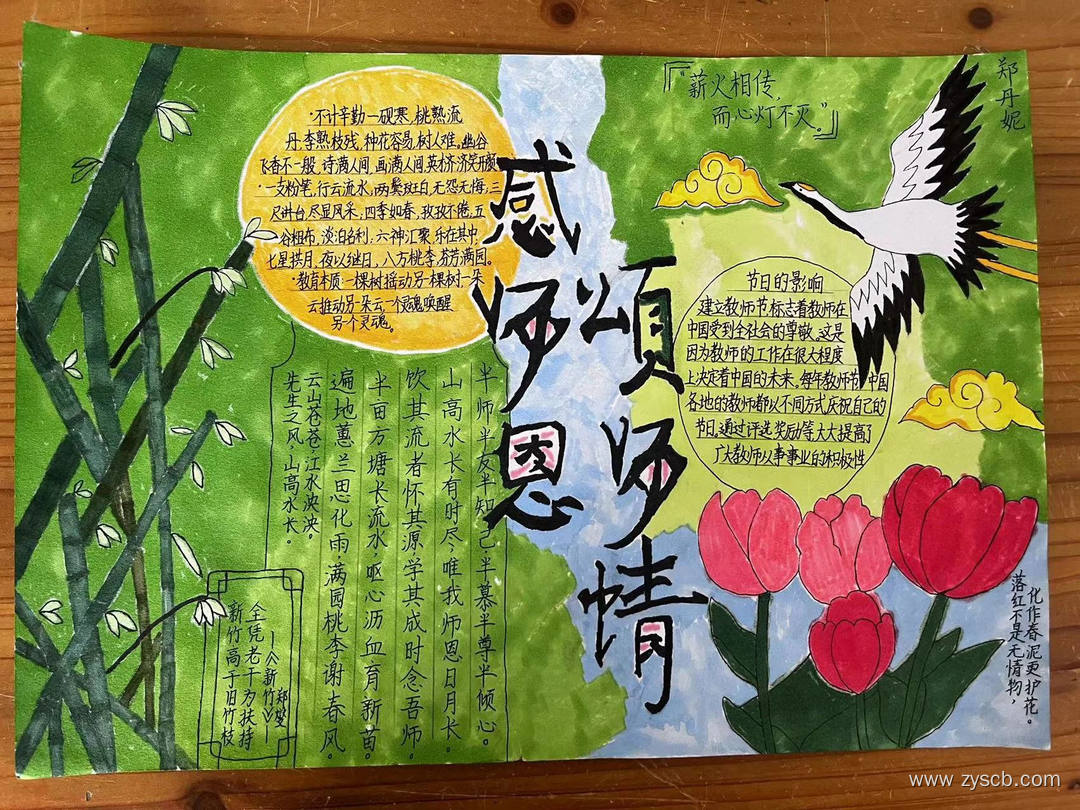 感师恩
颂师情
『"薪火相传,
而心灯不灭。"』
郑丹妮
"不计辛勤一砚寒,桃熟流
丹,李熟枝残,种花容易,树人难。幽谷
飞香不一般,诗满人间,画满人间,英才济济笑开颜
"一支粉笔,行云流水,两鬓斑白,无怨无悔,三
尺讲台,尽显风采,四季如春,孜孜不倦,五
谷粗布,淡泊名利;六神汇聚,乐在其中,
七星拱月,夜以继日,八方桃李,芬芳满园。
"教育本质:一棵树摇动另一棵树,一朵
云推动另一朵云,一个灵魂唤醒
另个灵魂。
节日的影响
建立教师节,标志着教师在
中国受到全社会的尊敬,这是
因为教师的工作在很大程度
上决定着中国的未来。每年教师节,中国
各地的教师都以不同方式庆祝自己的
节日,通过评选奖励等,大大提高了
广大教师从事事业的积极性
半师半友半知己,半慕半尊半倾心。
山高水长有时尽,唯我师恩日月长。
饮其流者怀其源,学其成时念吾师
半亩方塘长流水,呕心沥血育新苗
遍地蕙兰思化雨,满园桃李谢春风
云山苍苍,江水泱泱。
先生之风,山高水长。
——《新竹》郑燮
全凭老干为扶持
新竹高于旧竹枝
落红不是无情物,
化作春泥更护花。
www.zyscb.com